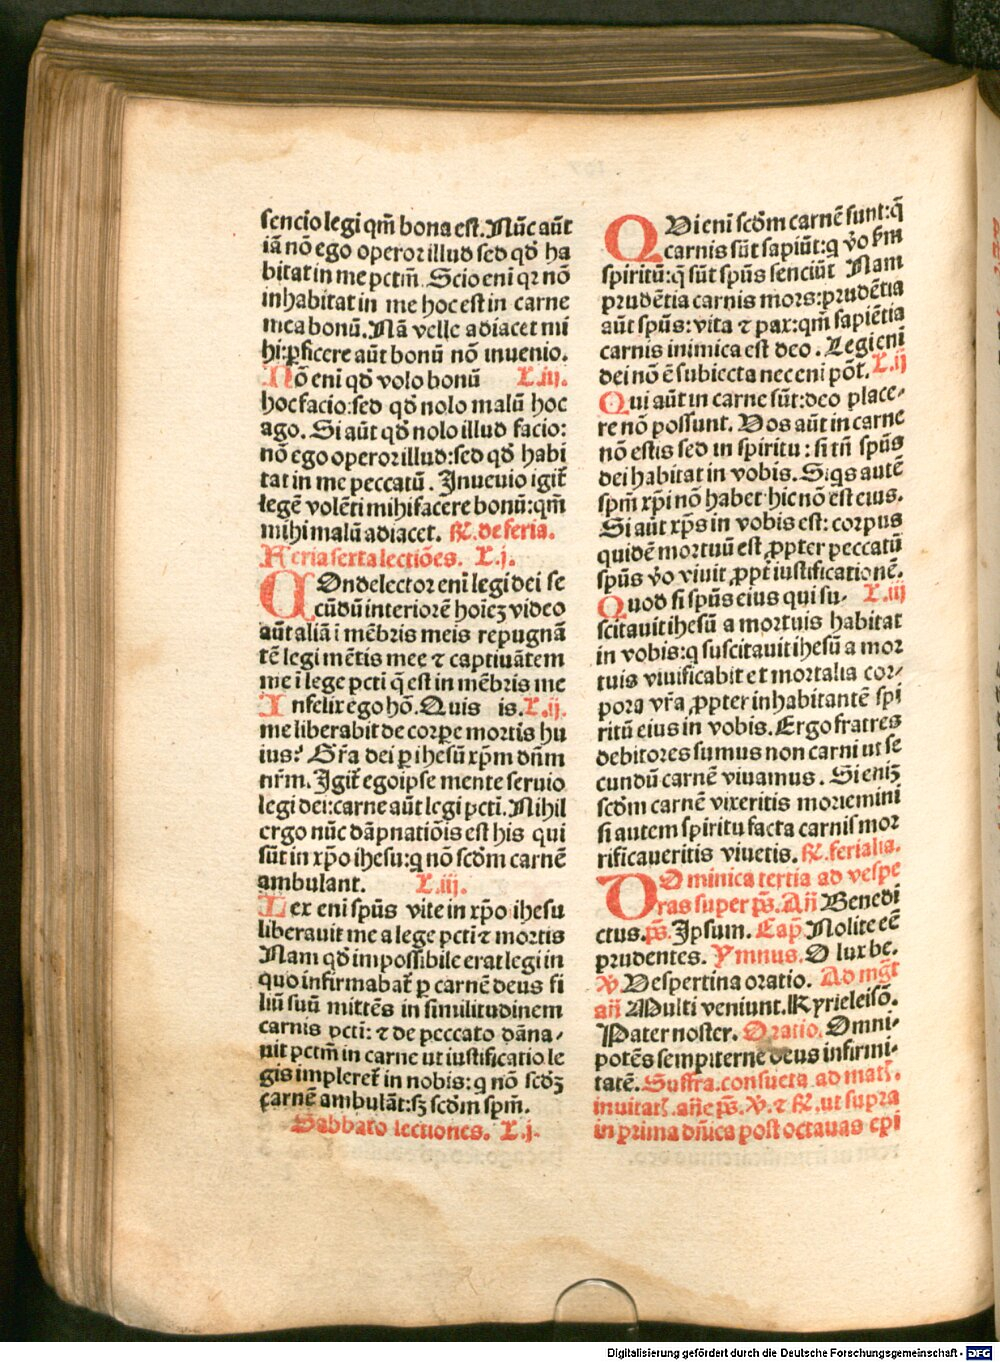 sencio legi qm̄ bona est. Nūc aūt
iā nō ego operor illud sed qd̄ ha
bitat in me pctm̄. Scio enī qꝛ nō
inhabitat in me hoc est in carne
mea bonū. Nā velle adiacet mi
hi: ꝑficere aūt bonū nō inuenio.
Nō enī qd̄ volo bonū L.iij.
hoc facio: sed qd̄ nolo malū hoc
ago. Si aūt qd̄ nolo illud facio:
nō ego operor illud: sed qd̄ habi
tat in me peccatū. Inuenio igit̄
legē volēti mihi facere bonū: qm̄
mihi malū adiacet. ℟. de feria.
Feria sexta lectiōes. L.j.
COndelector enī legi dei se
cūdū interiorē hoieꝫ video
aūt aliā ī mēbris meis repugnā
tē legi mētis mee ⁊ captiuātem
me ī lege pcti q̄ est in mēbris me
Infelix ego hō. Quis is. L.ij.
me liberabit de corpe mortis hu
ius? Gr̄a dei ꝑ ihesū xp̄m dn̄m
nr̄m. Igit̄ ego ipse mente seruio
legi dei: carne aūt legi pcti. Nihil
ergo nūc dāpnatiōis est his qui
sūt in xp̄o ihesu: q nō scd̄m carnē
ambulant. L.iij.
Lex enī spūs vite in xp̄o ihesu
liberauit me a lege pcti ⁊ mortis
Nam qd̄ impossibile erat legi in
quo infirmabat̄ ꝑ carnē deus fi
liū suū mittēs in similitudinem
carnis pcti: ⁊ de peccato dāna-
uit pctm̄ in carne ut iustificatio le
gis impleret̄ in nobis: q nō scd̄ꝫ
carnē ambulāt: sꝫ scd̄m spm̄.
Sabbato lectiones. L.j.
QVi enī scd̄m carnē sunt: q̄
carnis sūt sapiūt: q v̄o s̄m
spiritū: q̄ sūt spūs senciūt Nam
prudētia carnis mors: prudētia
aūt spūs: vita ⁊ pax: qm̄ sapiētia
carnis inimica est deo. Legi enī
dei nō ē subiecta nec enī pōt. L.ij
Qui aūt in carne sūt: deo place-
re nō possunt. Vos aūt in carne
nō estis sed in spiritu: si tn̄ spūs
dei habitat in vobis. Si qs autē
spm̄ xp̄i nō habet hic nō est eius.
Si aūt xp̄s in vobis est: corpus
quidē mortuū est ꝓpter peccatū
spūs v̄o viuit ꝓpt̄ iustificationē.
Quod si spūs eius qui su- L.iij
scitauit ihesū a mortuis habitat
in vobis: q suscitauit ihesū a mor
tuis viuificabit et mortalia cor-
pora vr̄a ꝓpter inhabitantē spi
ritū eius in vobis. Ergo fratres
debitores sumus non carni ut se
cundū carnē viuamus. Si eniꝫ
scd̄m carnē vixeritis moriemini
si autem spiritu facta carnis mor
tificaueritis viuetis. ℟. ferialia.
DOminica tertia ad vespe
ras super p̄s. An̄ Benedi
ctus. p̄s. Ipsum. Cap̄ Nolite eē
prudentes. Ymnus. O lux be.
℣. Vespertina oratio. Ad mḡt
an̄ Multi veniunt. Kyrieleisō.
Pater noster. Oratio. Omni-
potēs sempiterne deus infirmi-
tatē. Suffra. consueta ad mat̄.
inuitat̄. an̄e p̄s. ℣. ⁊ ℟. ut supra
in prima dn̄ica post octauas epi
Digitalisierung gefördert durch die Deutsche Forschungsgemeinschaft - DFG